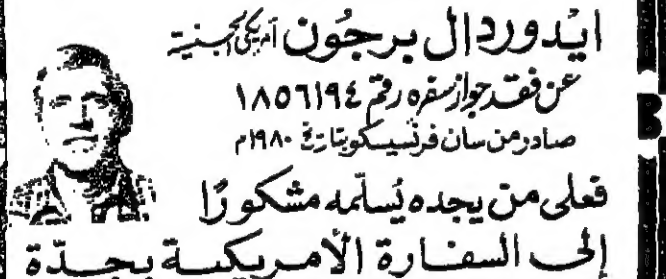 ايدوردال برجون أمريكي الجنسية
عن فقد جواز سفره رقم ١٨٥٦١٩٤
صادر من سان فرنسيسكو بتاريخ ١٩٨٠م
فعلى من يجده يُسلّمه مشكورًا
إلى السفارة الأمريكية بجدّة
B